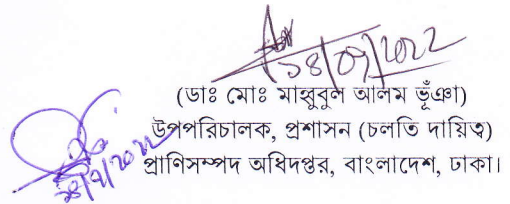 ১৪/০৭/২০২২
(ডাঃ মোঃ মাহ্বুবুল আলম ভূঁঞা)
উপপরিচালক, প্রশাসন (চলতি দায়িত্ব)
প্রাণিসম্পদ অধিদপ্তর, বাংলাদেশ, ঢাকা।
১৪/৭/২০২২